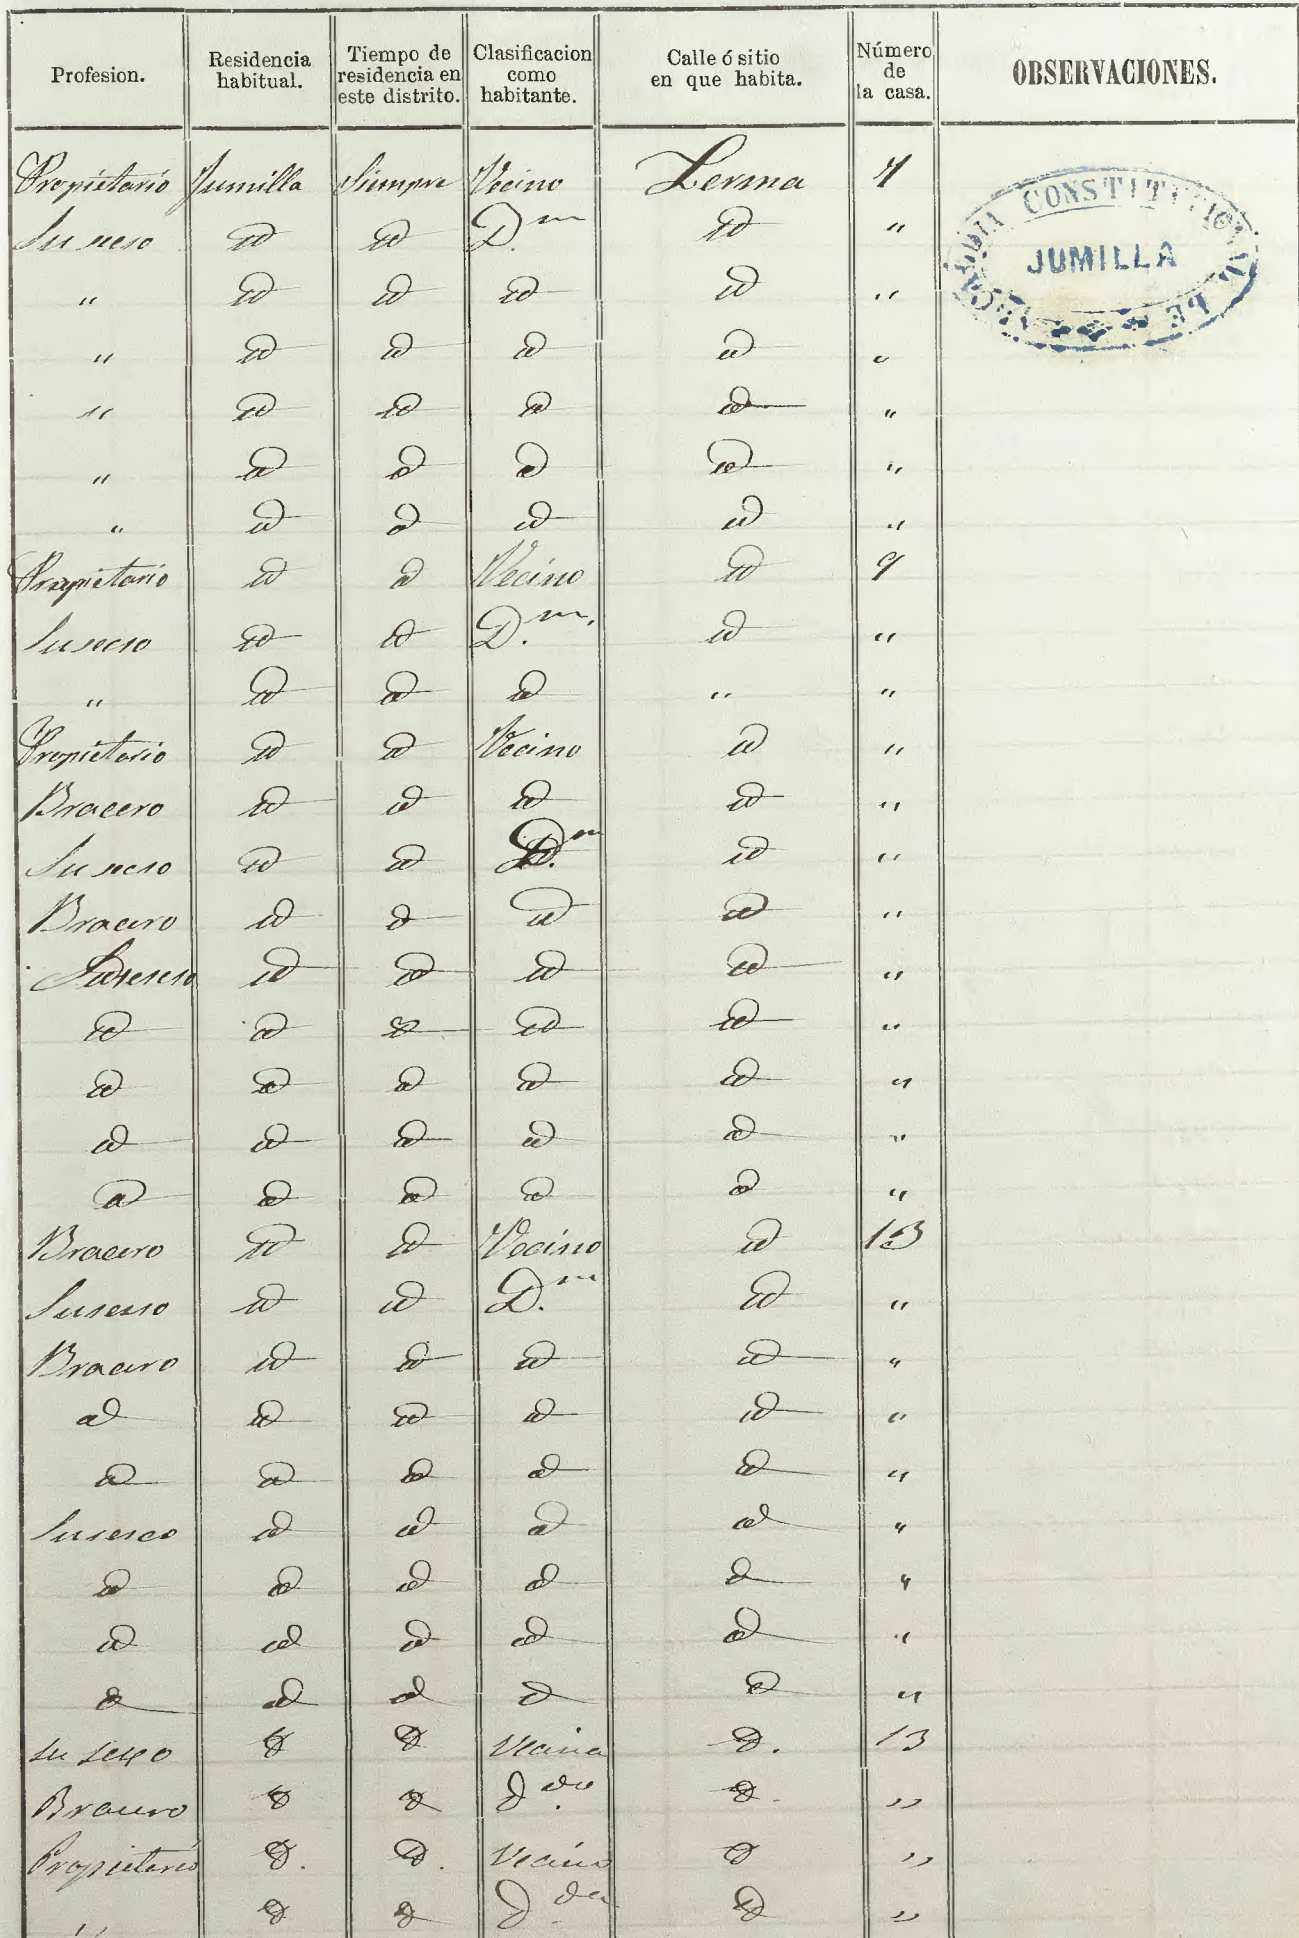 Profesion. Residencia habitual. Tiempo de residencia en este distrito. Clasificacion como habitante. Calle ó sitio en que habita. Número de la casa. OBSERVACIONES.
Propietario Jumilla Siempre Vecino Lerma 7
Su sexo id id D.m id "
" id id id id "
" id id id id "
" id id id id "
" id id id id "
" id id id id "
Propietario id id Vecino id 9
Su sexo id id D.m id "
" id id id " "
Propietario id id Vecino id "
Bracero id id id id "
Su sexo id id D.m id "
Bracero id id id id "
Su sexo id id id id "
id id id id id "
id id id id id "
id id id id id "
id id id id id "
Bracero id id Vecino id 13
Su sexo id id D.m id "
Bracero id id id id "
id id id id id "
id id id id id "
Su sexo id id id id "
id id id id id "
id id id id id "
id id id id id "
su sexo id id Vecina id. 13
Bracero id id id. "
Propietario id. id. Vecino id "
" id id id "
ALCALDIA CONSTITUCIONAL DE
JUMILLA